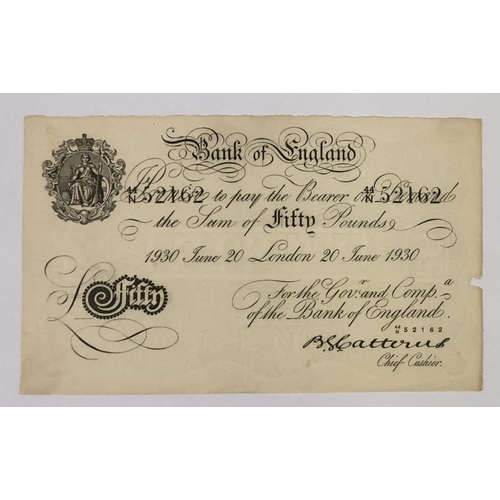 Bank of England
44/N 52162 to pay the Bearer on Demand 44/N 52162
the Sum of Fifty Pounds
1930 June 20 London 20 June 1930
For the Govr. and Compa.
£ Fifty
of the Bank of England.
44/N 52162
B.G. Catterns
Chief Cashier.